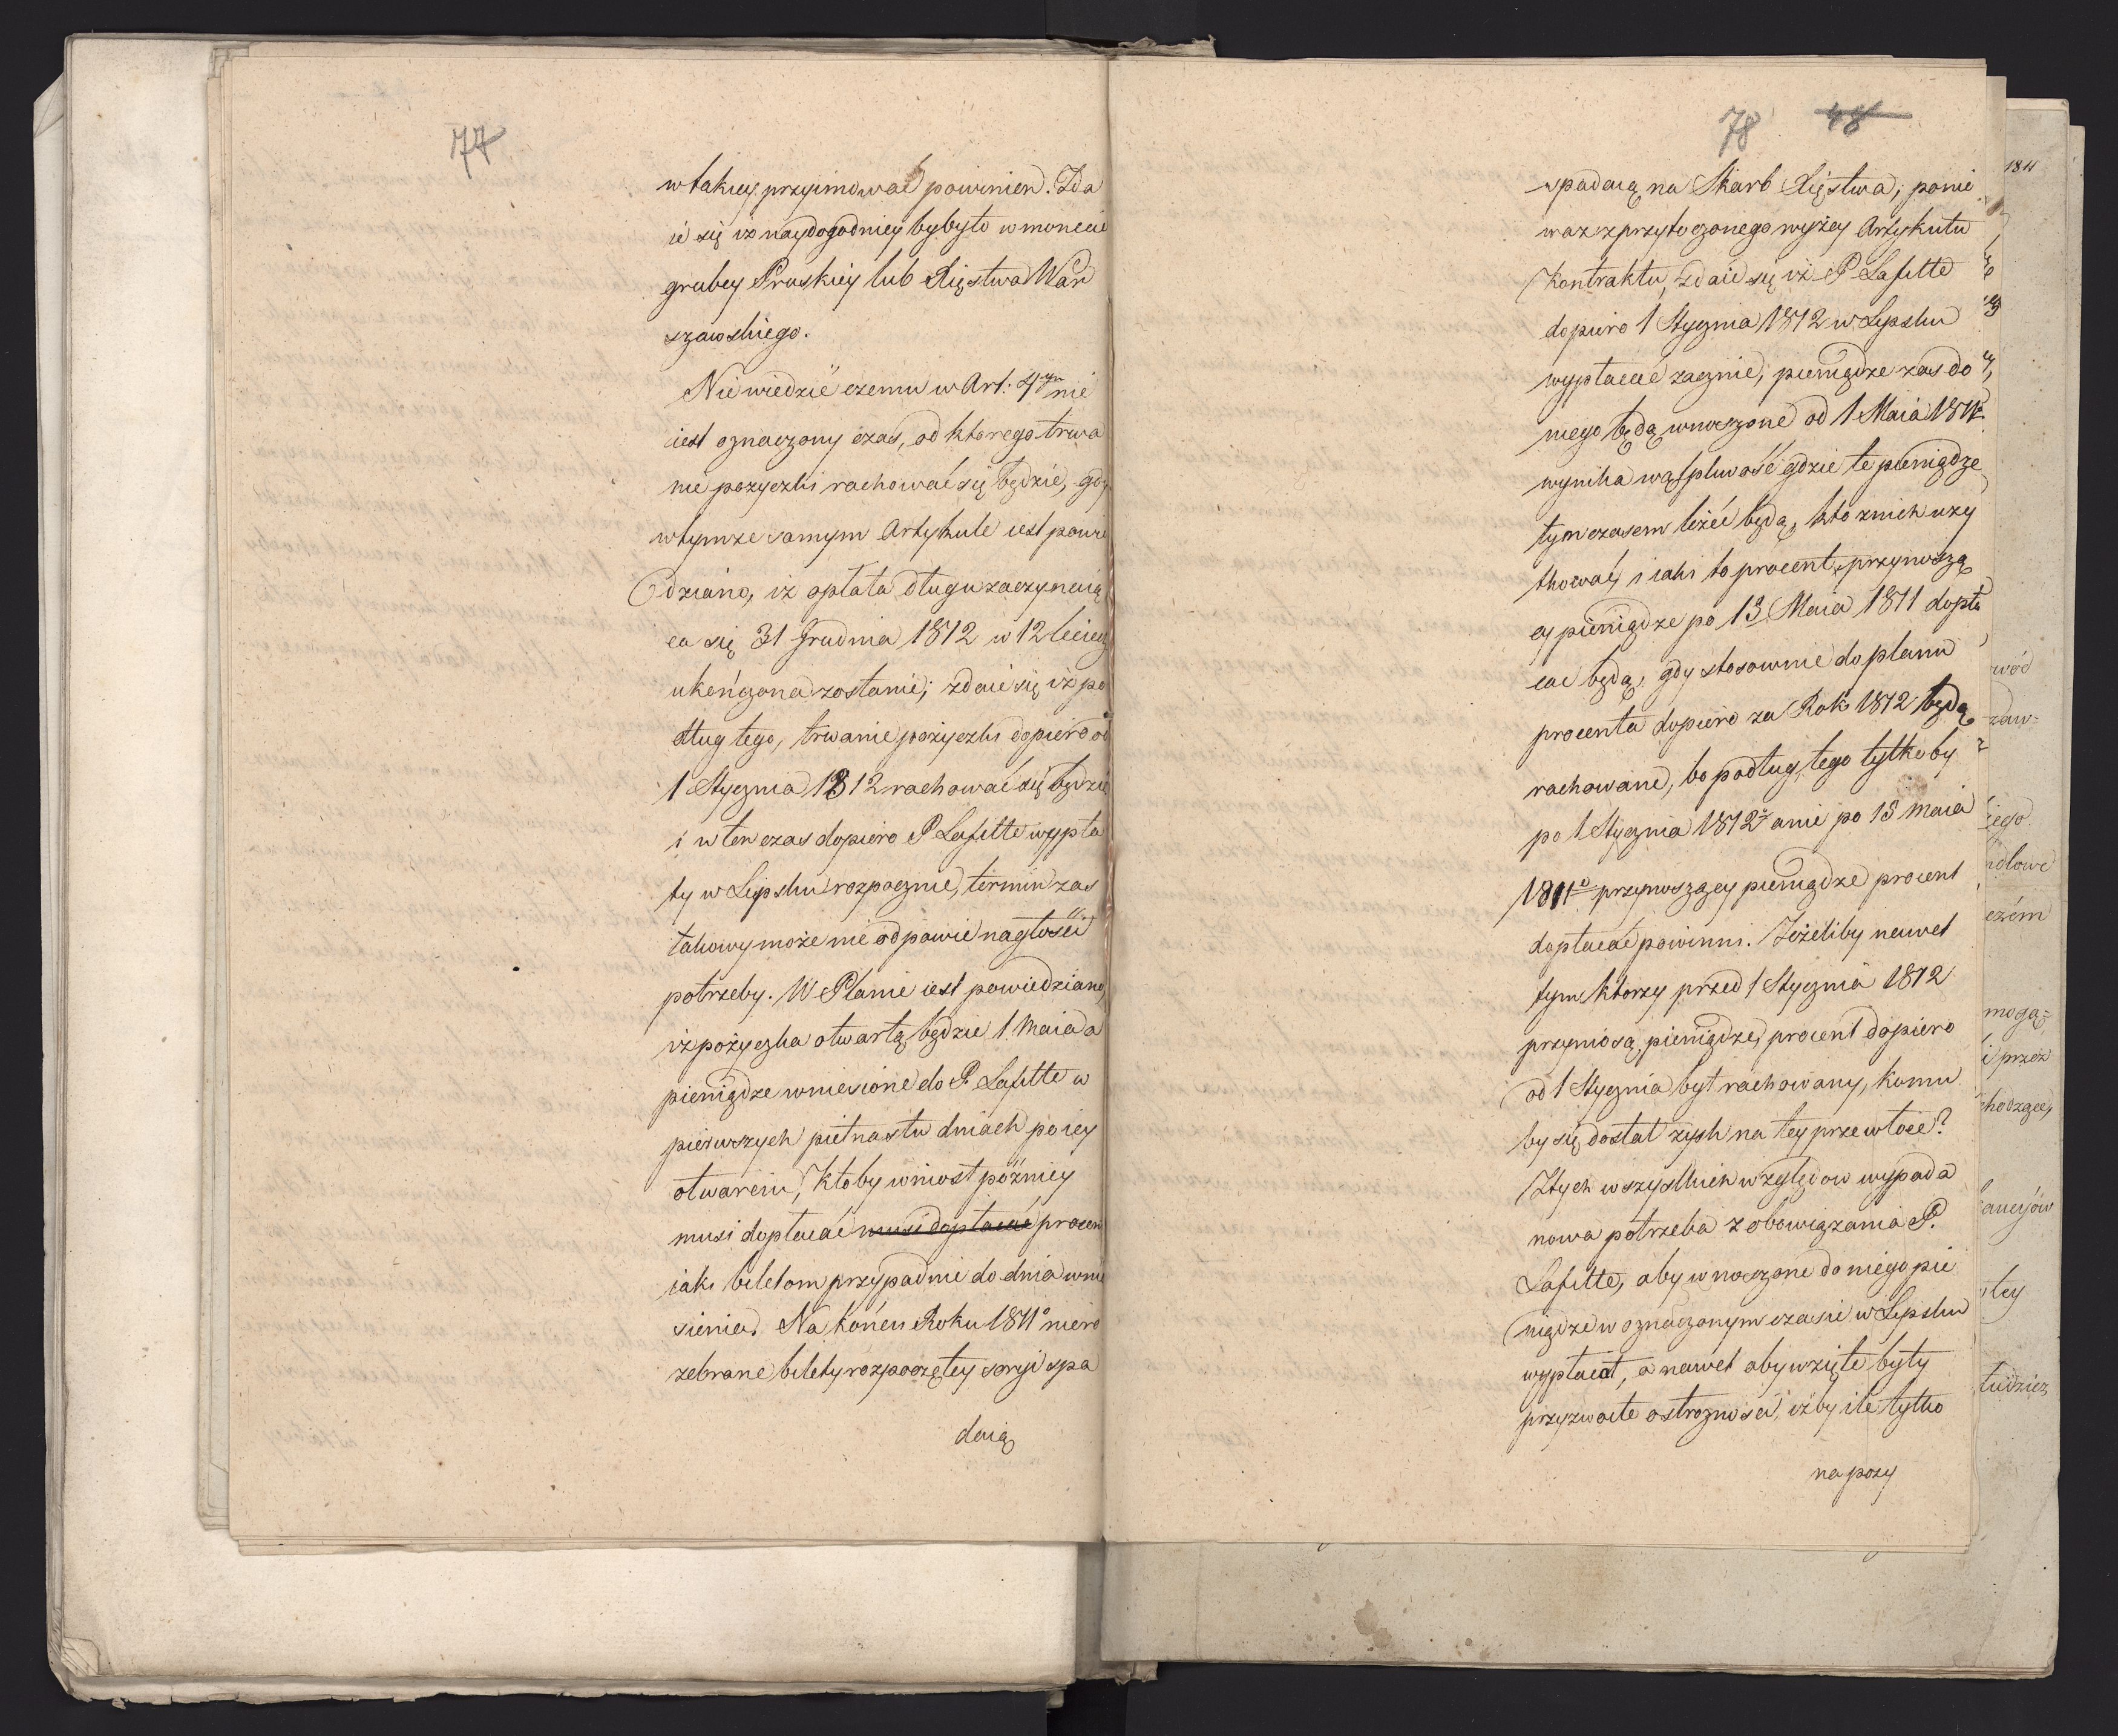 77
w takiey przyimować powinien. Zda
ie się iż naydogodniey by było w monecie
grubey Pruskiey lub Xięstwa War
szawskiego.
Nie wiedzić czemu w Art. 4ym nie
iest oznaczony czas, od ktorego trwa
nie pozyczki rachować się będzie, gdy
w tymże samym Artykule iest powie
dziano, iż opłata długu zaczynaią
ca się 31 Grudnia 1812 w 12 leciech
ukończona zostanie; zdaie się iż po
dług tego, trwanie pożyczki dopiero od
1 Stycznia 1812 rachować się będzie
i w ten czas dopiero P Lafitte wypła
ty w Lipsku rozpocznie, termin zas
takowy może nie odpowie nagłości
potrzeby. W Planie iest powiedziano,
iż pożyczka otwartą będzie 1. Maia a
pieniądze wniesione do P. Lafitte w
pierwszych pietnastu dniach po iey
otwarciu, Ktoby wniosł późniey
musi dopłacać musi dopłacać procen
iaki biletom przypadnie do dnia wnie
sienia. Na końcu Roku 1811o niero
zebrane bilety rozpoczętey seryi spa
daią
78 48
spadaią na Skarb Xięstwa, ponie
waz z przytoczonego wyżey Artykułu
Kontraktu, zdaie się iż P Lafitte
dopiero 1 Stycznia 1812 w Lipsku
wypłacać zacznie, pieniądze zas do
niego będą wnoszone od 1 Maia 1811
wynika wątpliwość gdzie te pieniądze
tymczasem leżeć będą, kto z nich uzy
tkować, i iaki to procent przynoszą
cy pieniądze po 13 Maia 1811 dopła
cac będą, gdy stosownie do planu
procenta dopiero za Rok 1812 będą
rachowane, bo podług tego tylko by
po 1 Stycznia 1812o a nie po 15 Maia
1811o przynoszący pieniądze procent
dopłacać powinni. Jeżeliby nawet
tym ktorzy przed 1 Stycznia 1812
przyniosą pieniądze, procent dopiero
od 1 Stycznia był rachowany, komu
by się dostał zysk na tey przewłoce?
Z tych wszystkich względow wypada
nowa potrzeba zobowiązania P.
Lafitte, aby wnoszone do niego pie
niądze w oznaczonym czasie w Lipsku
wypłacał, a nawet aby wzięte były
przyzwoite ostrożności, iżby ile tylko
na pozy
1811
wód
iego
dlowe
czém
mogą=
i przez
chodzące,
tey
tudzież